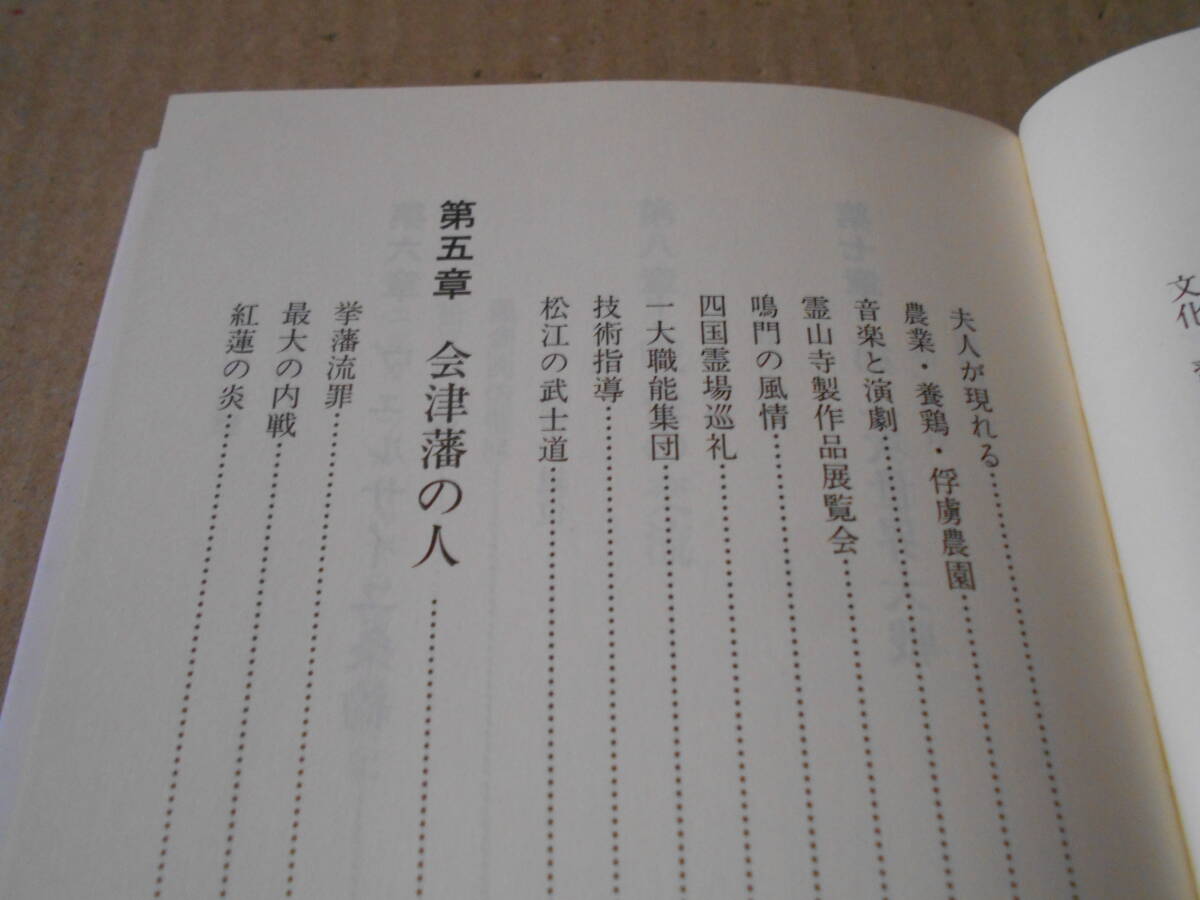 文化
夫人が現れる
農業・養鶏・俘虜農園
音楽と演劇
霊山寺製作品展覧会
鳴門の風情
四国霊場巡礼
一大職能集団
技術指導
松江の武士道
第五章 会津藩の人
挙藩流罪
最大の内戦
紅蓮の炎